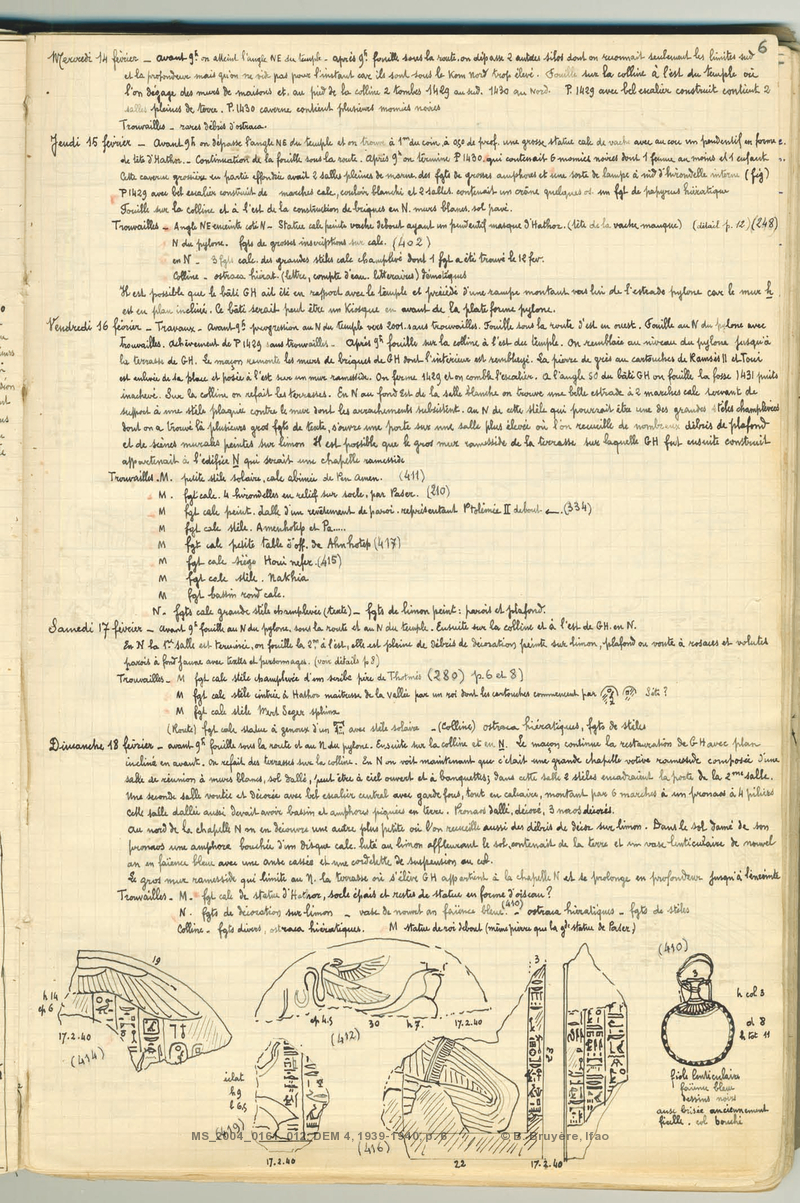 6
Mercredi 14 février _ avant 9h on atteint l'angle NE du temple _ après 9h fouille sous la route. on dépasse 2 autres silos dont on reconnait seulement les limites sud
et la profondeur mais qu'on ne vide pas pour l'instant car ils sont sous le Kom Nord trop élevé. Fouille sur la colline à l'est du temple où
l'on dégage des murs de maisons et au pied de la colline 2 tombes 1429 au sud. 1430 au Nord. P. 1429 avec bel escalier construit contient 2
salles pleines de terre. P. 1430 caverne contient plusieurs momies noires
Trouvailles _ rares débris d'ostraca.
Jeudi 15 février _ Avant 9h on dépasse l'angle NE du temple et on trouve à 1m du coin à 0,50 de prof. une grosse statue calc de vache avec au cou un pendentif en forme
de tête d'Hathor _ Continuation de la fouille sous la route. Après 9h on termine P 1430 qui contenait 6 momies noires dont 1 femme au moins et 1 enfant
Cette caverne grossière en partie effondrée avait 2 salles pleines de marne, des fgts de grosses amphores et une sorte de lampe à nid d'hirondelle interne (fig)
P 1429 avec bel escalier construit de marches calc, couloir blanchi et 2 salles contenait un crâne quelques os. un fgt de papyrus hiératique
Fouille sur la colline et à l'est de la construction de briques en N. murs blancs, sol pavé.
Trouvailles _ Angle NE enceinte coté N _ Statue calc peinte vache debout ayant un pendentif masque d'Hathor. (tête de la vache manque) (détail p. 12) (248)
N du pylone. fgts de grosses inscriptions sur calc. (402)
en N _ 3 fgts calc. des grandes stèles calc champlevé dont 1 fgt a été trouvé le 12 fev.
Colline _ ostraca hiérat. (lettre, compte d'eau. littéraires) démotiques
Il est possible que le bâti GH ait été en rapport avec le temple et précédé d'une rampe montant vers lui de l'estrade pylone car le mur h
est en plan incliné. Ce bâti serait peut être un Kiosque en avant de la plateforme pylone.
Vendredi 16 février _ Travaux _ Avant 9h progression au N du temple vers 2001. sans trouvailles. Fouille sous la route d'est en ouest. Fouille au N du pylone avec
trouvailles. Achèvement de P 1429 sans trouvailles _ Après 9h fouille sur la colline à l'est du temple. On remblaie au niveau du pylone jusqu'à
la terrasse de GH. Le maçon remonte les murs de briques de GH dont l'intérieur est remblayé. La pierre de grès au cartouches de Ramsès II et Toui
est enlevée de sa place et posée à l'est sur un mur ramesside. On ferme 1429 et on comble l'escalier. A l'angle SO du bâti GH on fouille la fosse 1431 puits
inachevé. Sur la colline on refait les terrasses. En N au fond Est de la salle blanche on trouve une belle estrade à 2 marches calc servant de
support à une stèle plaquée contre le mur dont les arrachements subsistent. Au N de cette stèle qui pourrait être une des grandes stèles champlevées
dont on a trouvé là plusieurs gros fgts de texte, s'ouvre une porte sur une salle plus élevée où l'on recueille de nombreux débris de plafond
et de scènes murales peintes sur limon Il est possible que le gros mur ramesside de la terrasse sur laquelle GH fut ensuite construit
appartenait à l'édifice N qui serait une chapelle ramesside
Trouvailles. M. petite stèle solaire, calc abimée de Pen Amen. (411)
M. fgt calc. 4 hirondelles en relief sur socle, par Paser. (210)
M fgt calc peint. dalle d'un revêtement de paroi. représentant Ptolémée II debout ←. (334)
M fgt calc stèle. Amenhotep et Pa.....
M fgt calc petite table d'off. de Ahnhotep (417)
M fgt calc siège Houi nefer. (415)
M fgt calc stèle. Nakhia
M fgt bassin rond calc.
N. fgts calc grande stèle champlevée (texte) _ fgts de limon peint: parois et plafond.
Samedi 17 février _ avant 9h fouille au N du pylone, sous la route et au N du temple. Ensuite sur la colline et à l'est de GH. en N.
En N la 1re salle est terminée, on fouille la 2me à l'est, elle est pleine de débris de décoration peinte sur limon, plafond ou voute à rosaces et volutes
parois à fond jaune avec textes et personnages. (voir détails p 8)
Trouvailles _ M fgt calc stèle champlevée d'un scribe père de Thotmès (280) p. 6 et 8)
M fgt calc stèle cintrée à Hathor maitresse de la Vallée par un roi dont les cartouches commencent par Séti ?
M fgt calc stèle Mert Seger sphinx
(Route) fgt calc statue à genoux d'un avec stèle solaire _ (Colline) ostraca hiératiques, fgts de stèles
Dimanche 18 février _ avant 9h fouille sous la route et au N du pylone. Ensuite sur la colline et en N. Le maçon continue la restauration de GH avec plan
incliné en avant. On refait des terrasses sur la colline. En N on voit maintenant que c'était une grande chapelle votive ramesside composée d'une
salle de réunion à murs blancs, sol dallé, peut être à ciel ouvert et à banquettes; dans cette salle 2 stèles encadraient la porte de la 2me salle.
Une seconde salle voutée et décorée avec bel escalier central avec garde fous, tout en calcaire, montant par 6 marches à un pronaos à 4 piliers
Cette salle dallée aussi devait avoir bassin et amphores piquées en terre. Pronaos dallé, décoré, 3 naos décorés.
Au nord de la chapelle N on en découvre une autre plus petite où l'on recueille aussi des débris de décor sur limon. Dans le sol damé de son
pronaos une amphore bouchée d'un disque calc. luté au limon affleurant le sol, contenait de la terre et un vase lenticulaire de nouvel
an en faïence bleu avec une anse cassée et une cordelette de suspension au col.
Le gros mur ramesside qui limite au N. la terrasse où s'élève GH appartient à la chapelle N et se prolonge en profondeur jusqu'à l'enceinte
Trouvailles _ M. fgt calc de statue d'Hathor, socle épais et restes de statue en forme d'oiseau?
N. fgts de décoration sur limon _ vase de nouvel an faïence bleue. (410) _ ostraca hiératiques _ fgts de stèles
Colline _ fgts divers, ostraca hiératiques. M statue de roi debout (même pierre que la gde statue de Paser)
19
h 14
ep 6
17.2.40
(414)
ep 4.5
30
h 7.
17.2.40
(412)
éclat
h 9
l 6,5
(419)
17.2.40
(416)
22
3
32
17.2.40
(410)
3
h col 3
d 8
h tot 11
fiole lenticulaire
faïence bleu
dessins noirs
anse brisée anciennement
ficelle. col bouché
MS_2004_0161_012, DEM 4, 1939-1940, p. 6 © B. Bruyère, Ifao